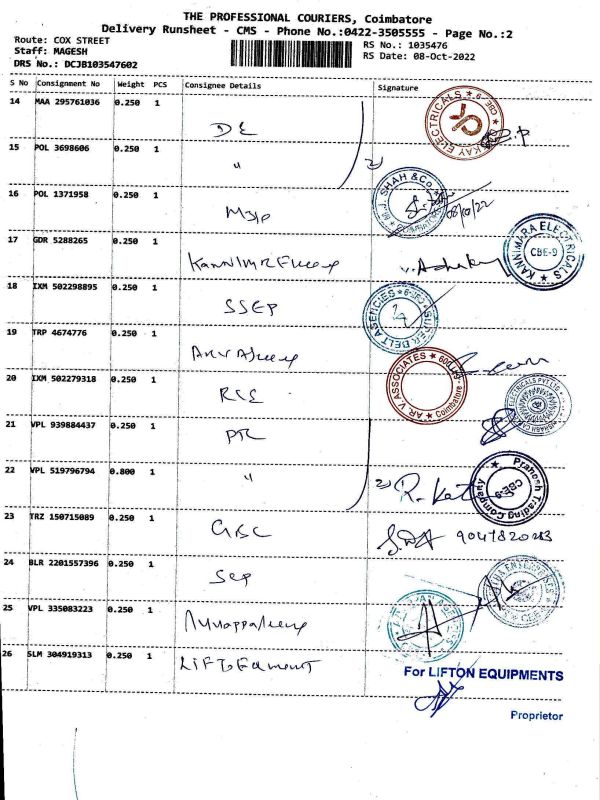 THE PROFESSIONAL COURIERS, Coimbatore
Delivery Runsheet - CMS - Phone No.:0422-3505555 - Page No.:2
Route: COX STREET
Staff: MAGESH
DRS No.: DCJB103547602
RS No.: 1035476
RS Date: 08-Oct-2022
S No Consignment No Weight PCS Consignee Details Signature
14 MAA 295761036 0.250 1
KAY ELECTRICALS ★ CBE-9
15 POL 3698606 0.250 1 "
16 POL 1371958 0.250 1
SHAH & Co.
08/10/22
17 GDR 5288265 0.250 1
KANNIMARA ELECTRICALS
CBE-9
18 IXM 502298895 0.250 1 SSEP
SUPER BELT AGENCIES ★ CBE-9
19 TRP 4674776 0.250 1
AR. V. ASSOCIATES ★ Coimbatore
20 IXM 502279318 0.250 1
21 VPL 939884437 0.250 1 PTC
22 VPL 519796794 0.800 1 "
Prahosh Trading Company
CBE-9
23 TRZ 150715089 0.250 1 GBC
24 BLR 2201557396 0.250 1 SEP
ENTERPRISES
25 VPL 335083223 0.250 1
26 SLM 304919313 0.250 1
For LIFTON EQUIPMENTS
Proprietor